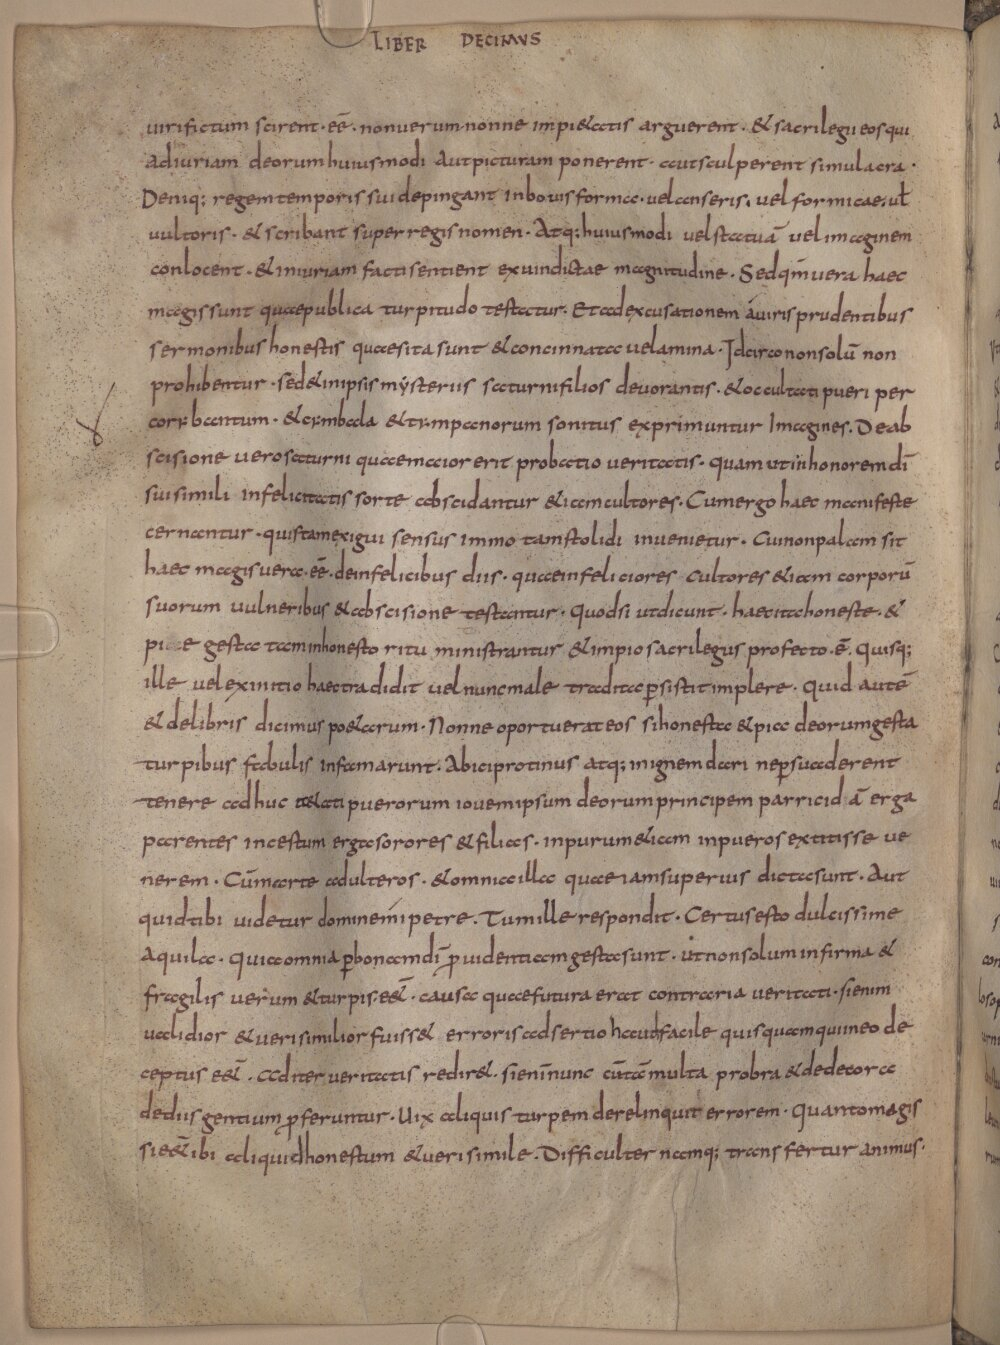 LIBER DECIMUS
uiri fictum scirent · eē · non uerum nonne impi&atis arguerent · & sacrilegii eos qui
ad iuriam deorum huiusmodi aut picturam ponerent · aut sculperent simulacra ·
Deniq; regem temporis sui depingant in bouis forma · uel anseris, uel formicae, uł
uultoris · & scribant super regis nomen · Atq; huiusmodi uel statuā uel imaginem
conlocent · & iniuriam facti sentient ex uindictae magnitudine · Sed qm̄ uera haec
magis sunt quae publica turpitudo testatur · Et ad excusationem a uiris prudentibus
sermonibus honestis quaesita sunt & concinnata uelamina · Idcirco non solū non
prohibentur · sed & in ipsis mẏsteriis saturni filios deuorantis · & occultati pueri per
coribantum · & cimbala & timpanorum sonitus exprimuntur Imagines · De ab
scisione uero saturni quae maior erit probatio ueritatis · quam ut in honorem dī
sui simili infelicitatis sorte abscidantur & iam cultores · Cum ergo haec manifeste
cernantur · quis tam exigui sensus immo tam stolidi inuenietur · Cui non palam sit
haec magis uera · eē · de infelicibus diis · quae infeliciores cultores & iam corporū
suorum uulneribus & abscisione testantur · Quod si ut dicunt · haec ita honeste · &
pie gesta tam inhonesto ritu ministrantur & impio sacrilegus profecto · ē · quisq;
ille uel ex initio haec tradidit uel nunc male tradita ꝑsistit implere · Quid autē
& de libris dicimus po&arum · Nonne oportuerat eos si honesta & pia deorum gesta
turpibus fabulis infamarunt · Abici protinus atq; in ignem dari ne ꝑsuaderent
tenere adhuc &ati puerorum iouem ipsum deorum principem parricidā erga
parentes incestum erga sorores & filias · inpurum & iam in pueros extitisse ue
nerem · Cū marte adulteros · & omnia illa quae iam superius dicta sunt · Aut
quid tibi uidetur domine mi petre · Tum ille respondit · Certus esto dulcissime
aquila · quia omnia ꝑ bonam dī ꝓuidentiam gesta sunt · ut non solum infirma &
fragilis uerum & turpis · eē& · causa quae futura erat contraria ueritati · si enim
ualidior & uerisimilior fuiss& erroris adsertio haud facile quisquam qui in eo de
ceptus eē& · ad iter ueritatis redir& · si enim nunc cū tā multa probra & dedecora
de diis gentium ꝓferuntur · Uix aliquis turpem derelinquit errorem · Quanto magis
si eē& ibi aliquid honestum & ueri simile · Difficulter namq; transfertur animus ·